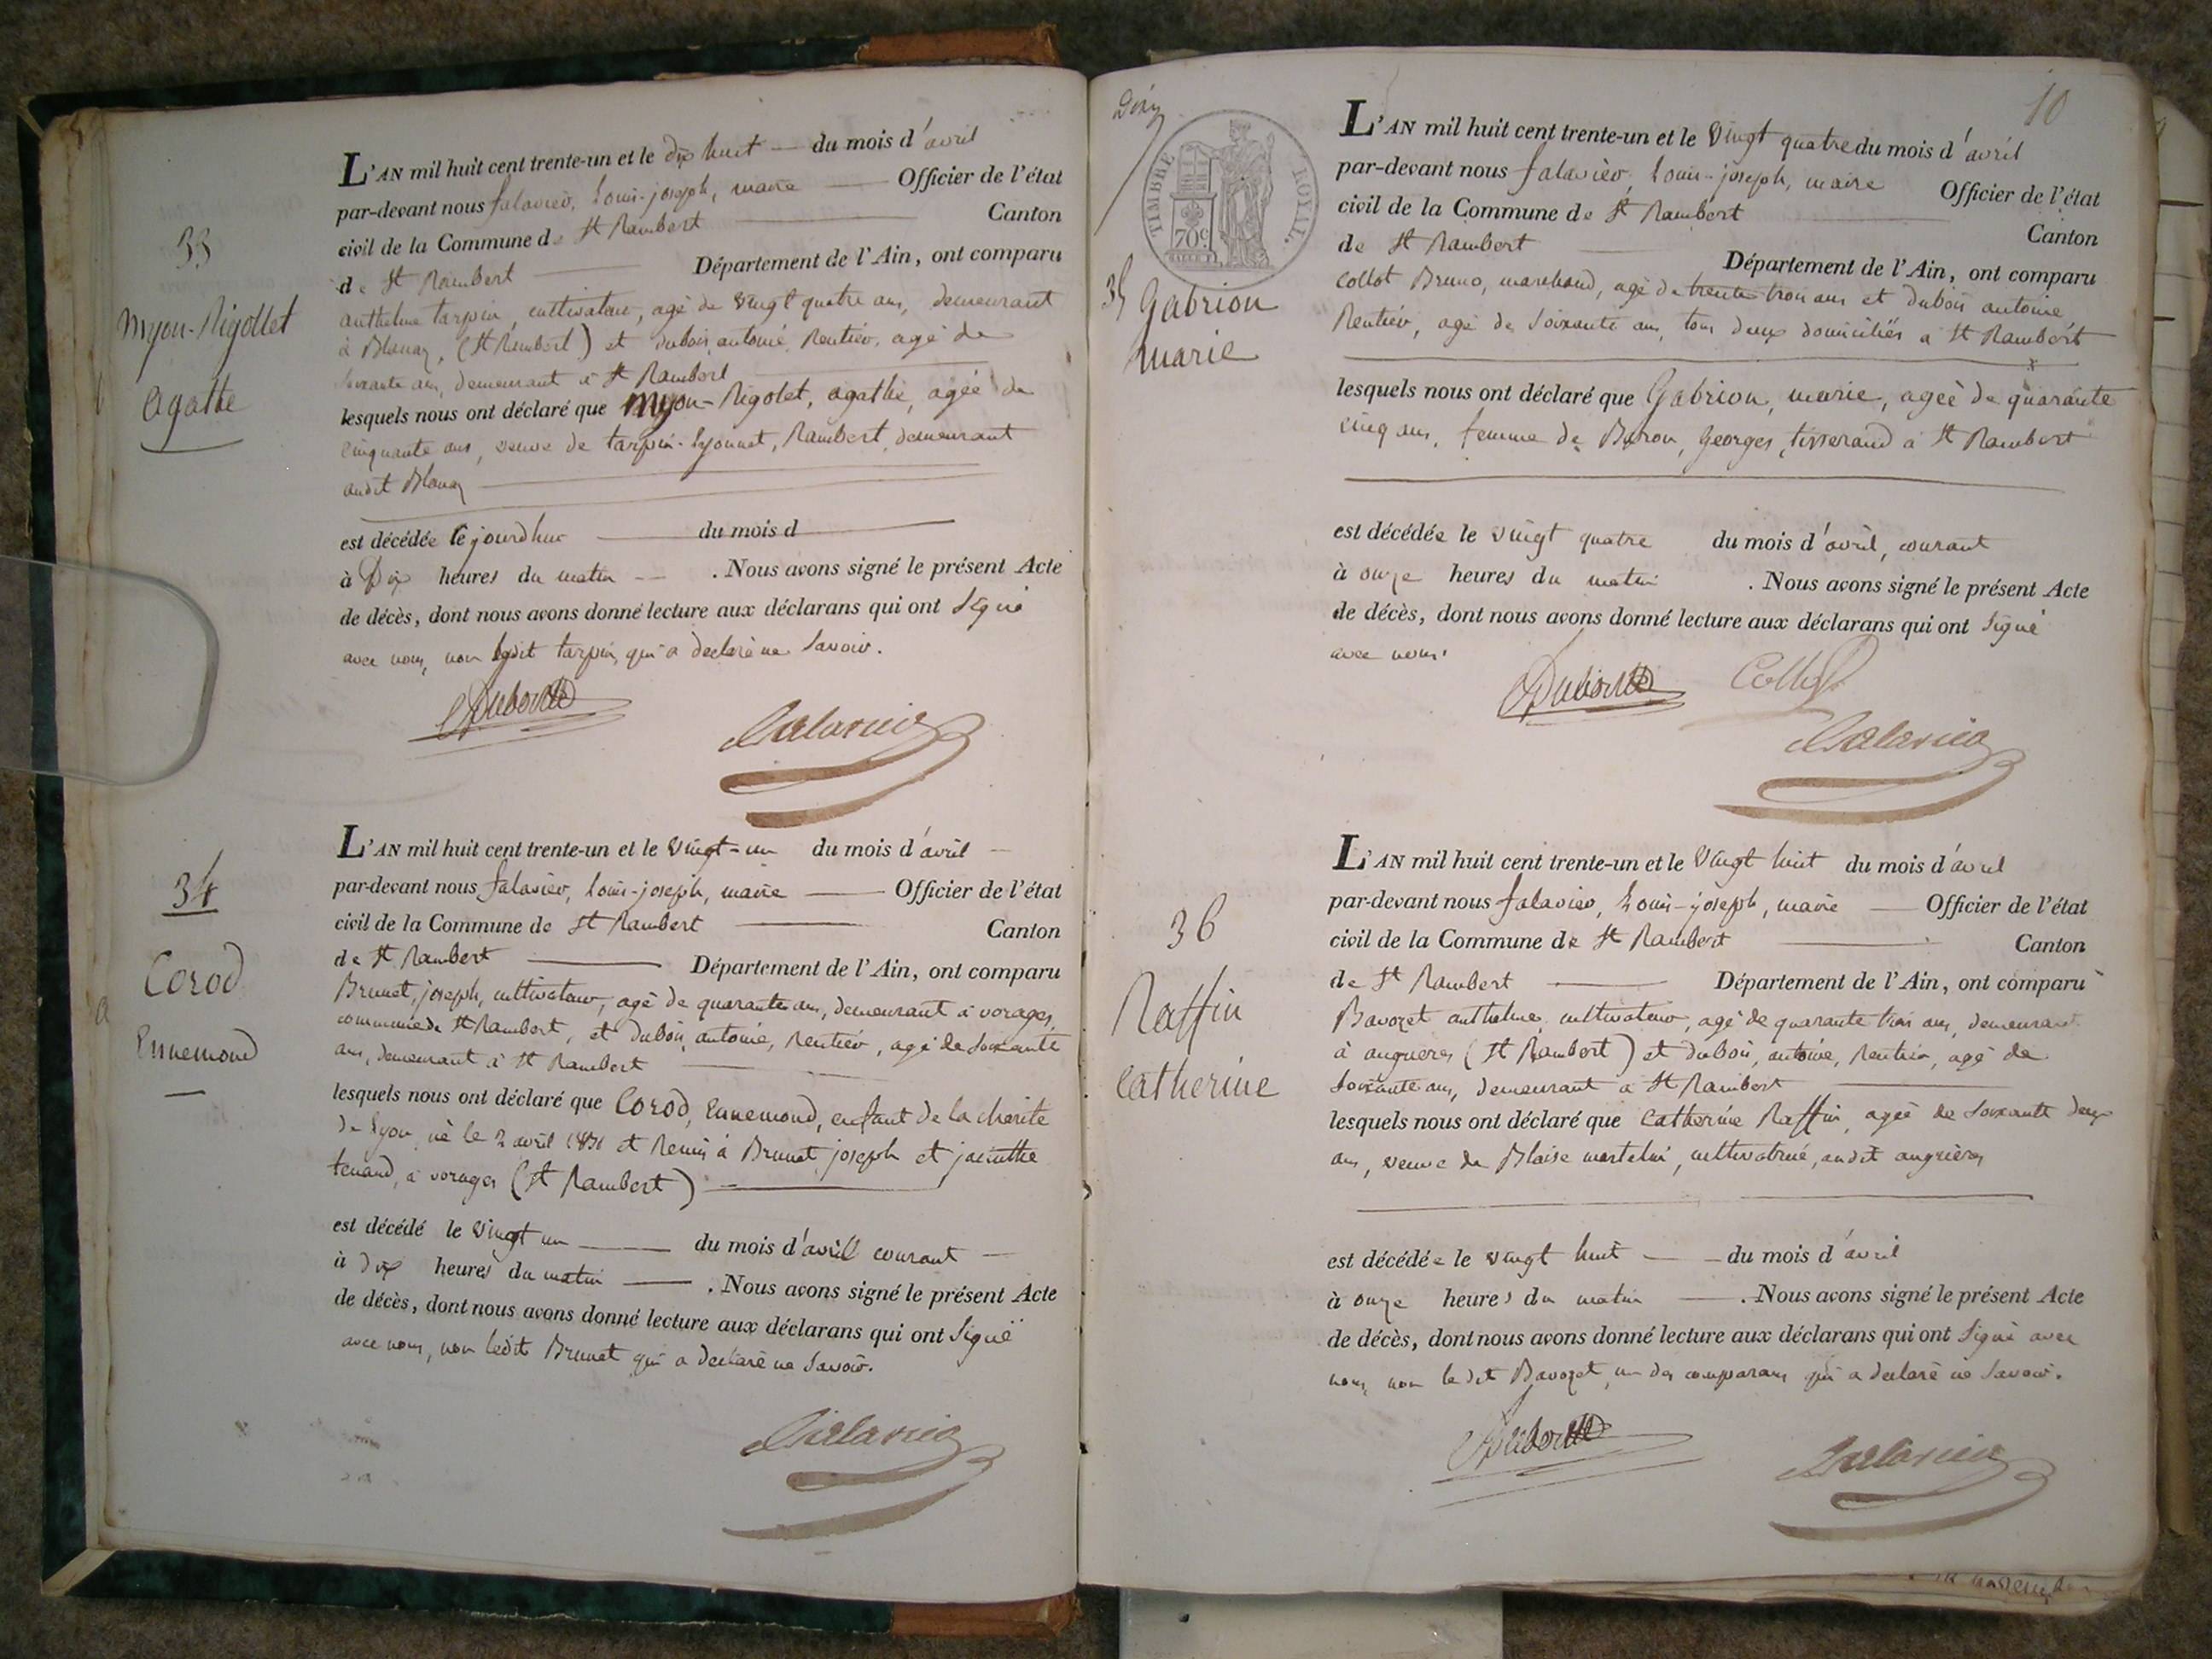 33
Myon-Rigollet
agathe
L'AN mil huit cent trente-un et le dix huit du mois d'avril
par-devant nous falavier, Louis-joseph, maire Officier de l'état
civil de la Commune de St Rambert Canton
de St Rambert Département de l'Ain, ont comparu
anthelme tarpin, cultivateur, agé de vingt quatre ans, demeurant
à Blanaz, (St Rambert) et dubois, antoine, Rentier, agé de
soixante ans, demeurant à St Rambert
lesquels nous ont déclaré que Myon-Rigolet, agathe, agée de
cinquante ans, veuve de tarpin-lyonnet, Rambert, demeurant
audit Blanaz
est décédée cejourdhui du mois d
à Dix heures du matin . Nous avons signé le présent Acte
de décès, dont nous avons donné lecture aux déclarans qui ont signé
avec nous, non ledit tarpin, qui a declaré ne savoir.
Dubois
Falavier
34
Corod
Ennemond
L'AN mil huit cent trente-un et le vingt-un du mois d'avril
par-devant nous falavier, Louis-joseph, maire Officier de l'état
civil de la Commune de St Rambert Canton
de St Rambert Département de l'Ain, ont comparu
Brunet, joseph, cultivateur, agé de quarante ans, demeurant à vorages,
commune de St Rambert, et dubois, antoine, Rentier, agé de soixante
ans, demeurant à St Rambert
lesquels nous ont déclaré que Corod, Ennemond, enfant de la charité
de Lyon, né le 2 avril 1831 et Remis à Brunet joseph et jacinthe
tenand, à vorages (St Rambert)
est décédé le vingt un du mois d'avril courant
à dix heures du matin . Nous avons signé le présent Acte
de décès, dont nous avons donné lecture aux déclarans qui ont signé
avec nous, non ledit Brunet qui a declaré ne savoir.
Falavier
10
TIMBRE ROYAL
70c
35 Gabrion
marie
L'AN mil huit cent trente-un et le vingt quatre du mois d'avril
par-devant nous falavier, Louis-joseph, maire Officier de l'état
civil de la Commune de St Rambert Canton
de St Rambert Département de l'Ain, ont comparu
Collot Bruno, marchand, agé de trente trois ans et dubois antoine,
Rentier, agé de soixante ans, tous deux domiciliés à St Rambert
lesquels nous ont déclaré que Gabrion, marie, agée de quarante
cinq ans, femme de Buron, Georges, tisserand à St Rambert
est décédée le vingt quatre du mois d'avril, courant
à onze heures du matin . Nous avons signé le présent Acte
de décès, dont nous avons donné lecture aux déclarans qui ont signé
avec nous.
Dubois Collot
Falavier
36
Raffin
Catherine
L'AN mil huit cent trente-un et le vingt huit du mois d'avril
par-devant nous falavier, Louis-joseph, maire Officier de l'état
civil de la Commune de St Rambert Canton
de St Rambert Département de l'Ain, ont comparu
Bavozet anthelme, cultivateur, agé de quarante trois ans, demeurant
à angrieres (St Rambert) et dubois, antoine, Rentier, agé de
soixante ans, demeurant à St Rambert
lesquels nous ont déclaré que Catherine Raffin, agée de soixante deux
ans, veuve de Blaise martelin, cultivatrice, audit angrières
est décédée le vingt huit du mois d'avril
à onze heures du matin . Nous avons signé le présent Acte
de décès, dont nous avons donné lecture aux déclarans qui ont signé avec
nous, non ledit Bavozet, un des comparans qui a declaré ne savoir.
Dubois
Falavier